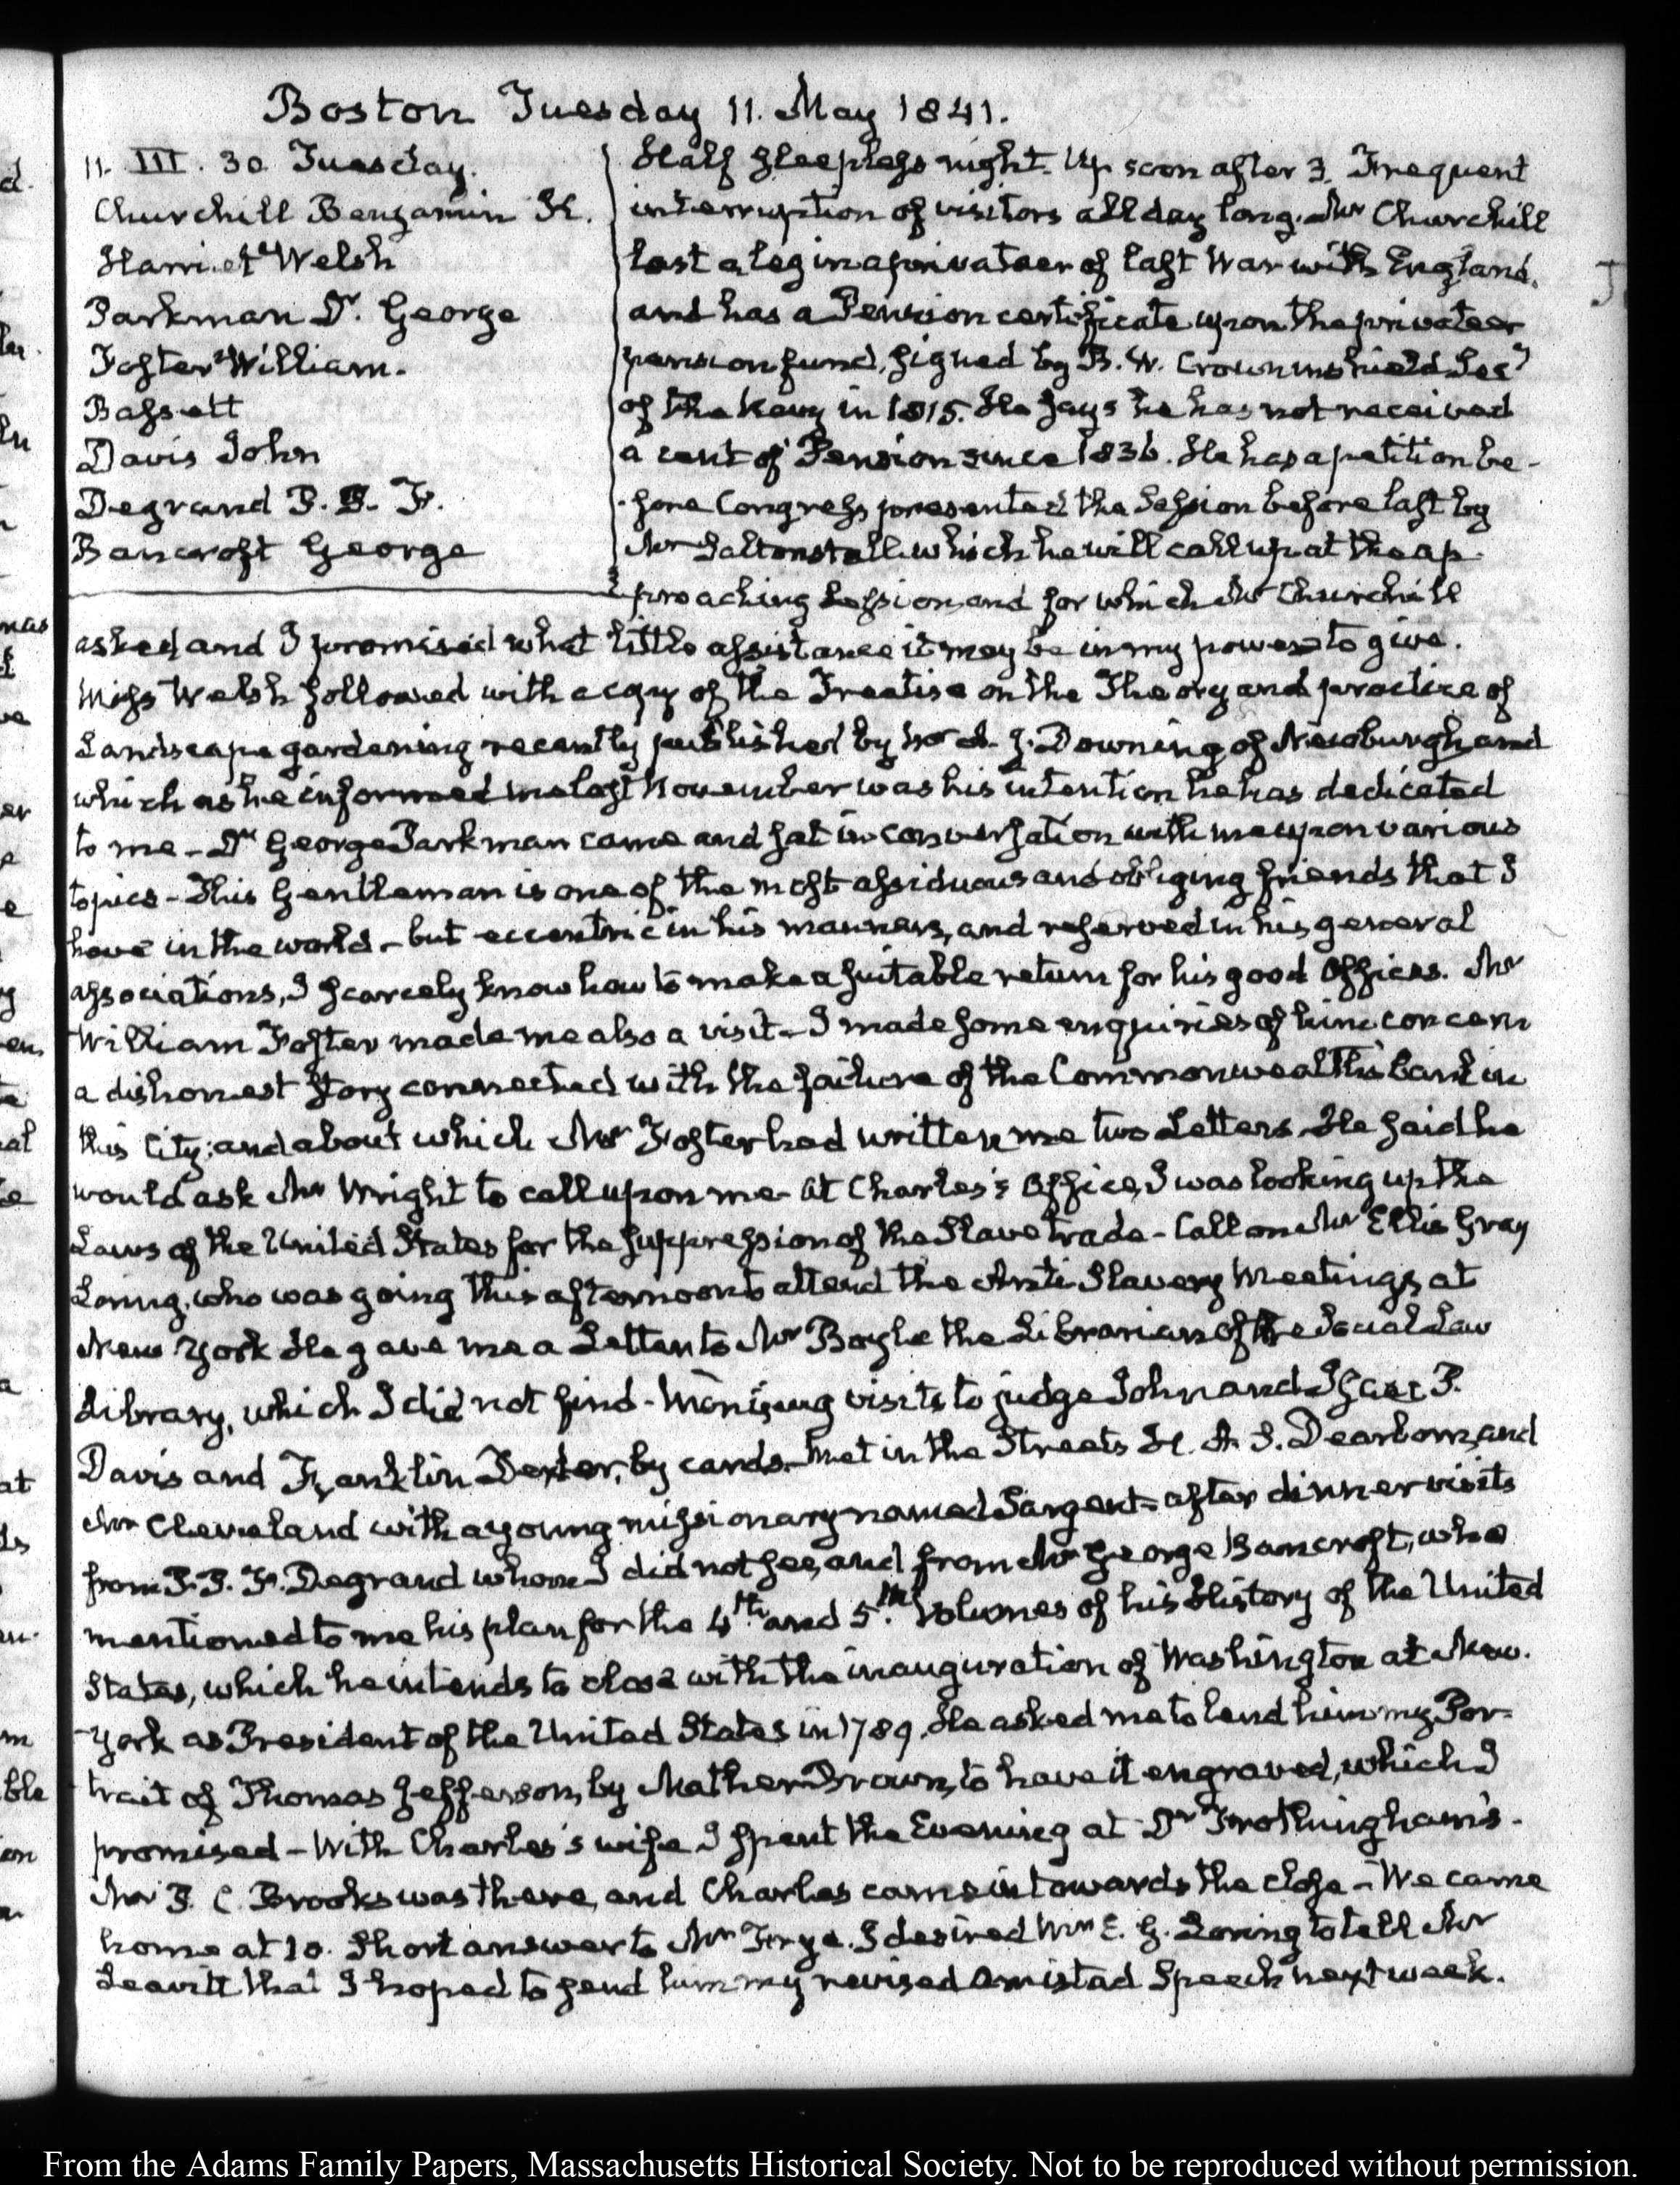 Boston Tuesday 11. May 1841.
11. III. 30. Tuesday.
Churchill Benjamin K.
Harriet Welsh
Parkman Dr. George
Foster William.
Bassett
Davis John
Degrand P. P. F.
Bancroft George
Half sleepless night. Up soon after 3. Frequent
interruption of visitors all day long. Mr Churchill
lost a leg in a privateer of last War with England,
and has a Pension certificate upon the privateer
pension fund, signed by B. W. Crowninshield Secy
of the Navy in 1815. He says he has not received
a cent of Pension since 1836. He has a petition be-
-fore Congress presented the Session before last by
Mr Saltonstall which he will call up at the ap-
proaching Session, and for which Mr Churchill
asked and I promised what little assistance it may be in my power to give.
Miss Welsh followed with a copy of the Treatise on the Theory and practice of
Landscape gardening recently published by Mr A. J. Downing of Newburgh, and
which as he informed me last November was his intention he has dedicated
to me - Dr George Parkman came and sat in conversation with me upon various
topics - This Gentleman is one of the most assiduous and obliging friends that I
have in the world - but eccentric in his manners, and reserved in his general
associations, I scarcely know how to make a suitable return for his good Offices. Mr
William Foster made me also a visit - I made some enquiries of him concern
a dishonest Story connected with the failure of the Commonwealth's bank in
this City; and about which Mr Foster had written me two Letters. He said he
would ask Mr Wright to call upon me - At Charles's Office, I was looking up the
Laws of the United States for the suppression of the Slave trade - Call on Mr Ellis Gray
Loring, who was going this afternoon to attend the Anti Slavery Meetings at
New York He gave me a Letter to Mr Boyle the Librarian of the Social Law
Library, which I did not find - Morning visits to judge John and Isaac P.
Davis and Franklin Dexter, by cards. Met in the Streets H. A. S. Dearborn, and
Mr Cleveland with a young missionary named Sargent - after dinner visits
from P. P. F. Degrand whom I did not see, and from Mr George Bancroft, who
mentioned to me his plan for the 4th and 5th Volumes of his History of the United
States, which he intends to close with the inauguration of Washington at New-
York as President of the United States in 1789. He asked me to lend him my Por-
trait of Thomas Jefferson, by Mather Brown, to have it engraved, which I
promised - With Charles's wife I spent the Evening at Dr Frothingham's -
Mr P. C. Brooks was there, and Charles came in towards the close - We came
home at 10. Short answer to Mr Frye. I desired E. G. Loring to tell Mr
Leavitt that I hoped to send him my revised Amistad Speech next week.
From the Adams Family Papers, Massachusetts Historical Society. Not to be reproduced without permission.